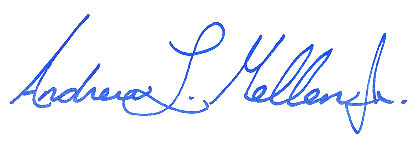 Andrew L. Mellen Jr.